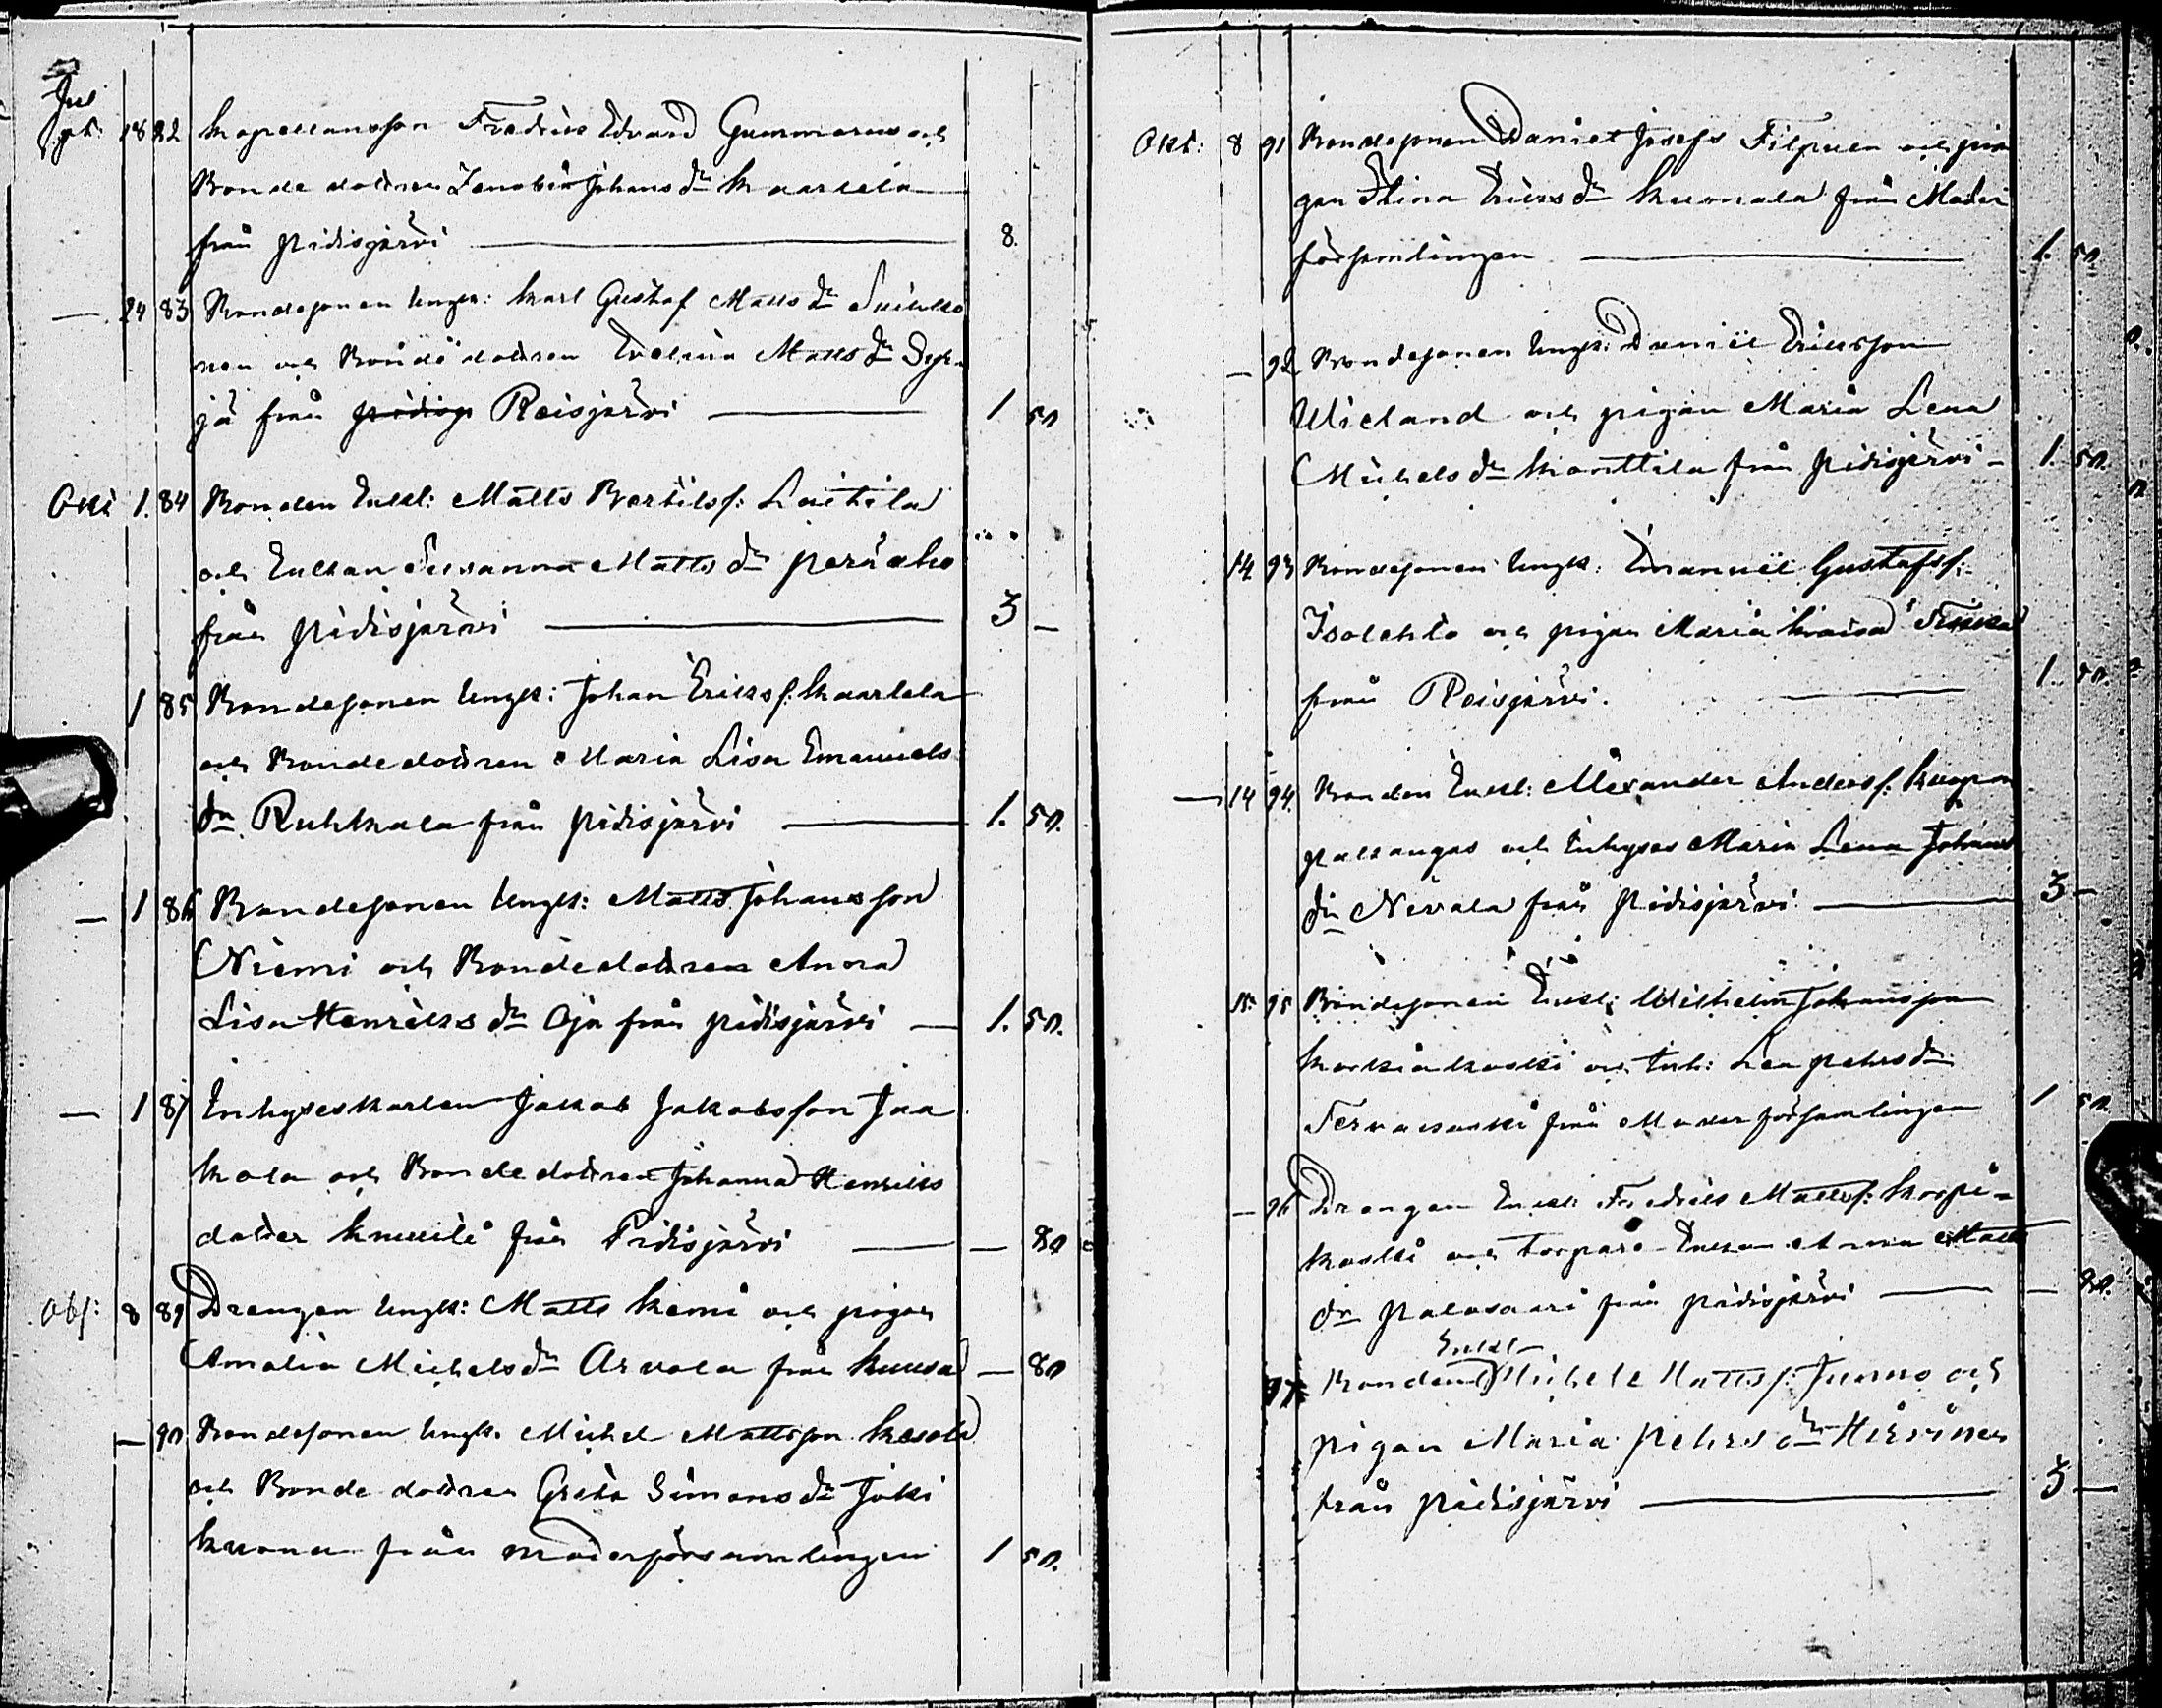 Jul
Spt: 18 82 Kapellansson Fredrik Edvard Gummerus och
Bonde dottren Zenobia Johans dr Kaarlela
från Pidisjärvi 8.
— 24 83 Bondesonen Ungk: Karl Gustaf Matts dr
nen och Bonde dottren Evelina Matts dr Syr
jä från Reisjärvi 1 50
Okt 1. 84 Bonden Enkl: Matts Bertilsf: Laitila
och Enkan Susanna Matts dr Peräaho
från Pidisjärvi 3 —
1 85 Bondesonen Ungk: Johan Eriksf: Kaarlela
och Bondedottren Maria Lisa Emanuels
dr Ruhkala från Pidisjärvi 1. 50.
— 1 86 Bondesonen Ungk: Matts Johansson
Niemi och Bondedottren Anna
Lisa Henriks dr Oja från Pidisjärvi — 1. 50.
— 1 87 Inhyseskarlen Jakob Jakobsson Jaa
kola och Bondedottren Johanna Henriks
dotter från Pidisjärvi — 80
8 89 Drengen Ungk: Matts Kemi och pigan
Amalia Michels dr Arvola från — 80
— 90 Bondesonen Ungk. Michel Mattsson Kesola
och Bonde dottren Greta Simons dr Joki
från moderförsamlingen 1 50.
Okt: 8 91 Bondesonen Daniel Josefs Filpuen och pi
gan Stina Eriks dr från Moder
församlingen 1. 50
— 92 Bondesonen Ungk: Daniel Eriksson
Wieland och pigan Maria Lena
Michels dr Konttila från Pidisjärvi — 1. 50.
14 93 Bondesonen Ungk: Emanuel Gustafsf:
Isolehto och pigan Maria Kaisa
från Reisjärvi. 1. 50.
— 14 94. Bonden Enkl: Alexander Andersf:
kangas och Inhyses Maria Lena Johans
dr Nivala från Pidisjärvi 3 —
15 95 Bondesonen Enkl: Wilhelm Johansson
Korkiakoski och Inh: Lea Pehrs dr
Tervakoski från Moderförsamlingen 1 50.
— 96 Drengen Enkl: Fredrik Mattsf: Korpi-
koski och Torpare-Enkan Anna Matts
dr Palosaari från Pidisjärvi — 80.
Enkl
97 Bonden Michel Mattsf: Junno och
pigan Maria Pehrs dr Hirvinen
från Pidisjärvi 3 —